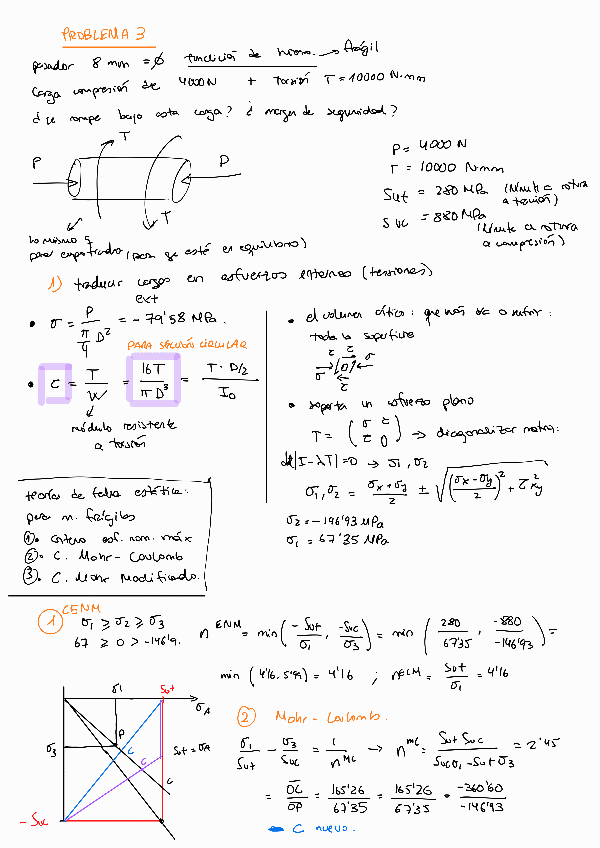 PROBLEMA 3
pasador 8 mm = Ø fundición de hierro. → frágil
carga compresión de 4000 N + torsión T = 10000 N·mm
¿se rompe bajo esta carga? ¿margen de seguridad?
T
P
P
T
P = 4000 N
T = 10000 N·mm
Sut = 280 MPa (límite a rotura a tensión)
Suc = 880 MPa (límite a rotura a compresión)
lo mismo q
para empotrado (para que esté en equilibrio)
1) traducir cargas ext en esfuerzos internos (tensiones)
• σ = P / (π/4 D²) = -79'58 MPa.
PARA SECCIÓN CIRCULAR
• τ = T / W = 16T / πD³ = T · D/2 / I₀
módulo resistente
a torsión
• el volumen crítico: que más va a sufrir:
toda la superficie
τ τ σ
σ τ
• soporta un esfuerzo plano
T = (σ τ / τ 0) → diagonalizar matriz:
det|I-λT| = 0 → σ1, σ2
σ1, σ2 = (σx + σy)/2 ± √(((σx - σy)/2)² + τ²xy)
σ2 = -146'93 MPa
σ1 = 67'35 MPa
teorías de falla estática:
para m. frágiles
①. Criterio esf. norm. máx
②. C. Mohr - Coulomb
③. C. Mohr Modificado.
① CENM
σ1 ≥ σ2 ≥ σ3
67 ≥ 0 > -146'9.
n^ENM = min(-Sut/σ1, -Suc/σ3) = min(280/67'35, -880/-146'93) =
min (4'16, 5'99) = 4'16 ; n^ECM = Sut/σ1 = 4'16
σ1 Sut
σA
σ3
P
C
C
C
Sut = σA
- Suc
② Mohr - Coulomb.
σ1/Sut - σ3/Suc = 1/n^MC → n^MC = Sut Suc / (Suc σ1 - Sut σ3) = 2'45
= OC/OP = 165'26/67'35 = 165'26/67'35 = -360'60/-146'93
C nuevo.